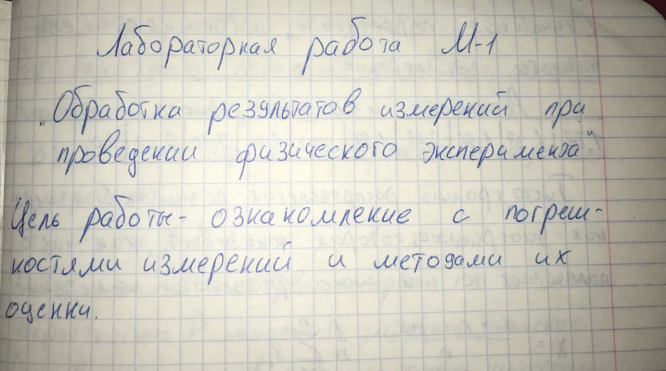 Лабораторная работа М-1
„Обработка результатов измерений при
проведении физического эксперимента"
Цель работы - ознакомление с погреш-
ностями измерений и методами их
оценки.